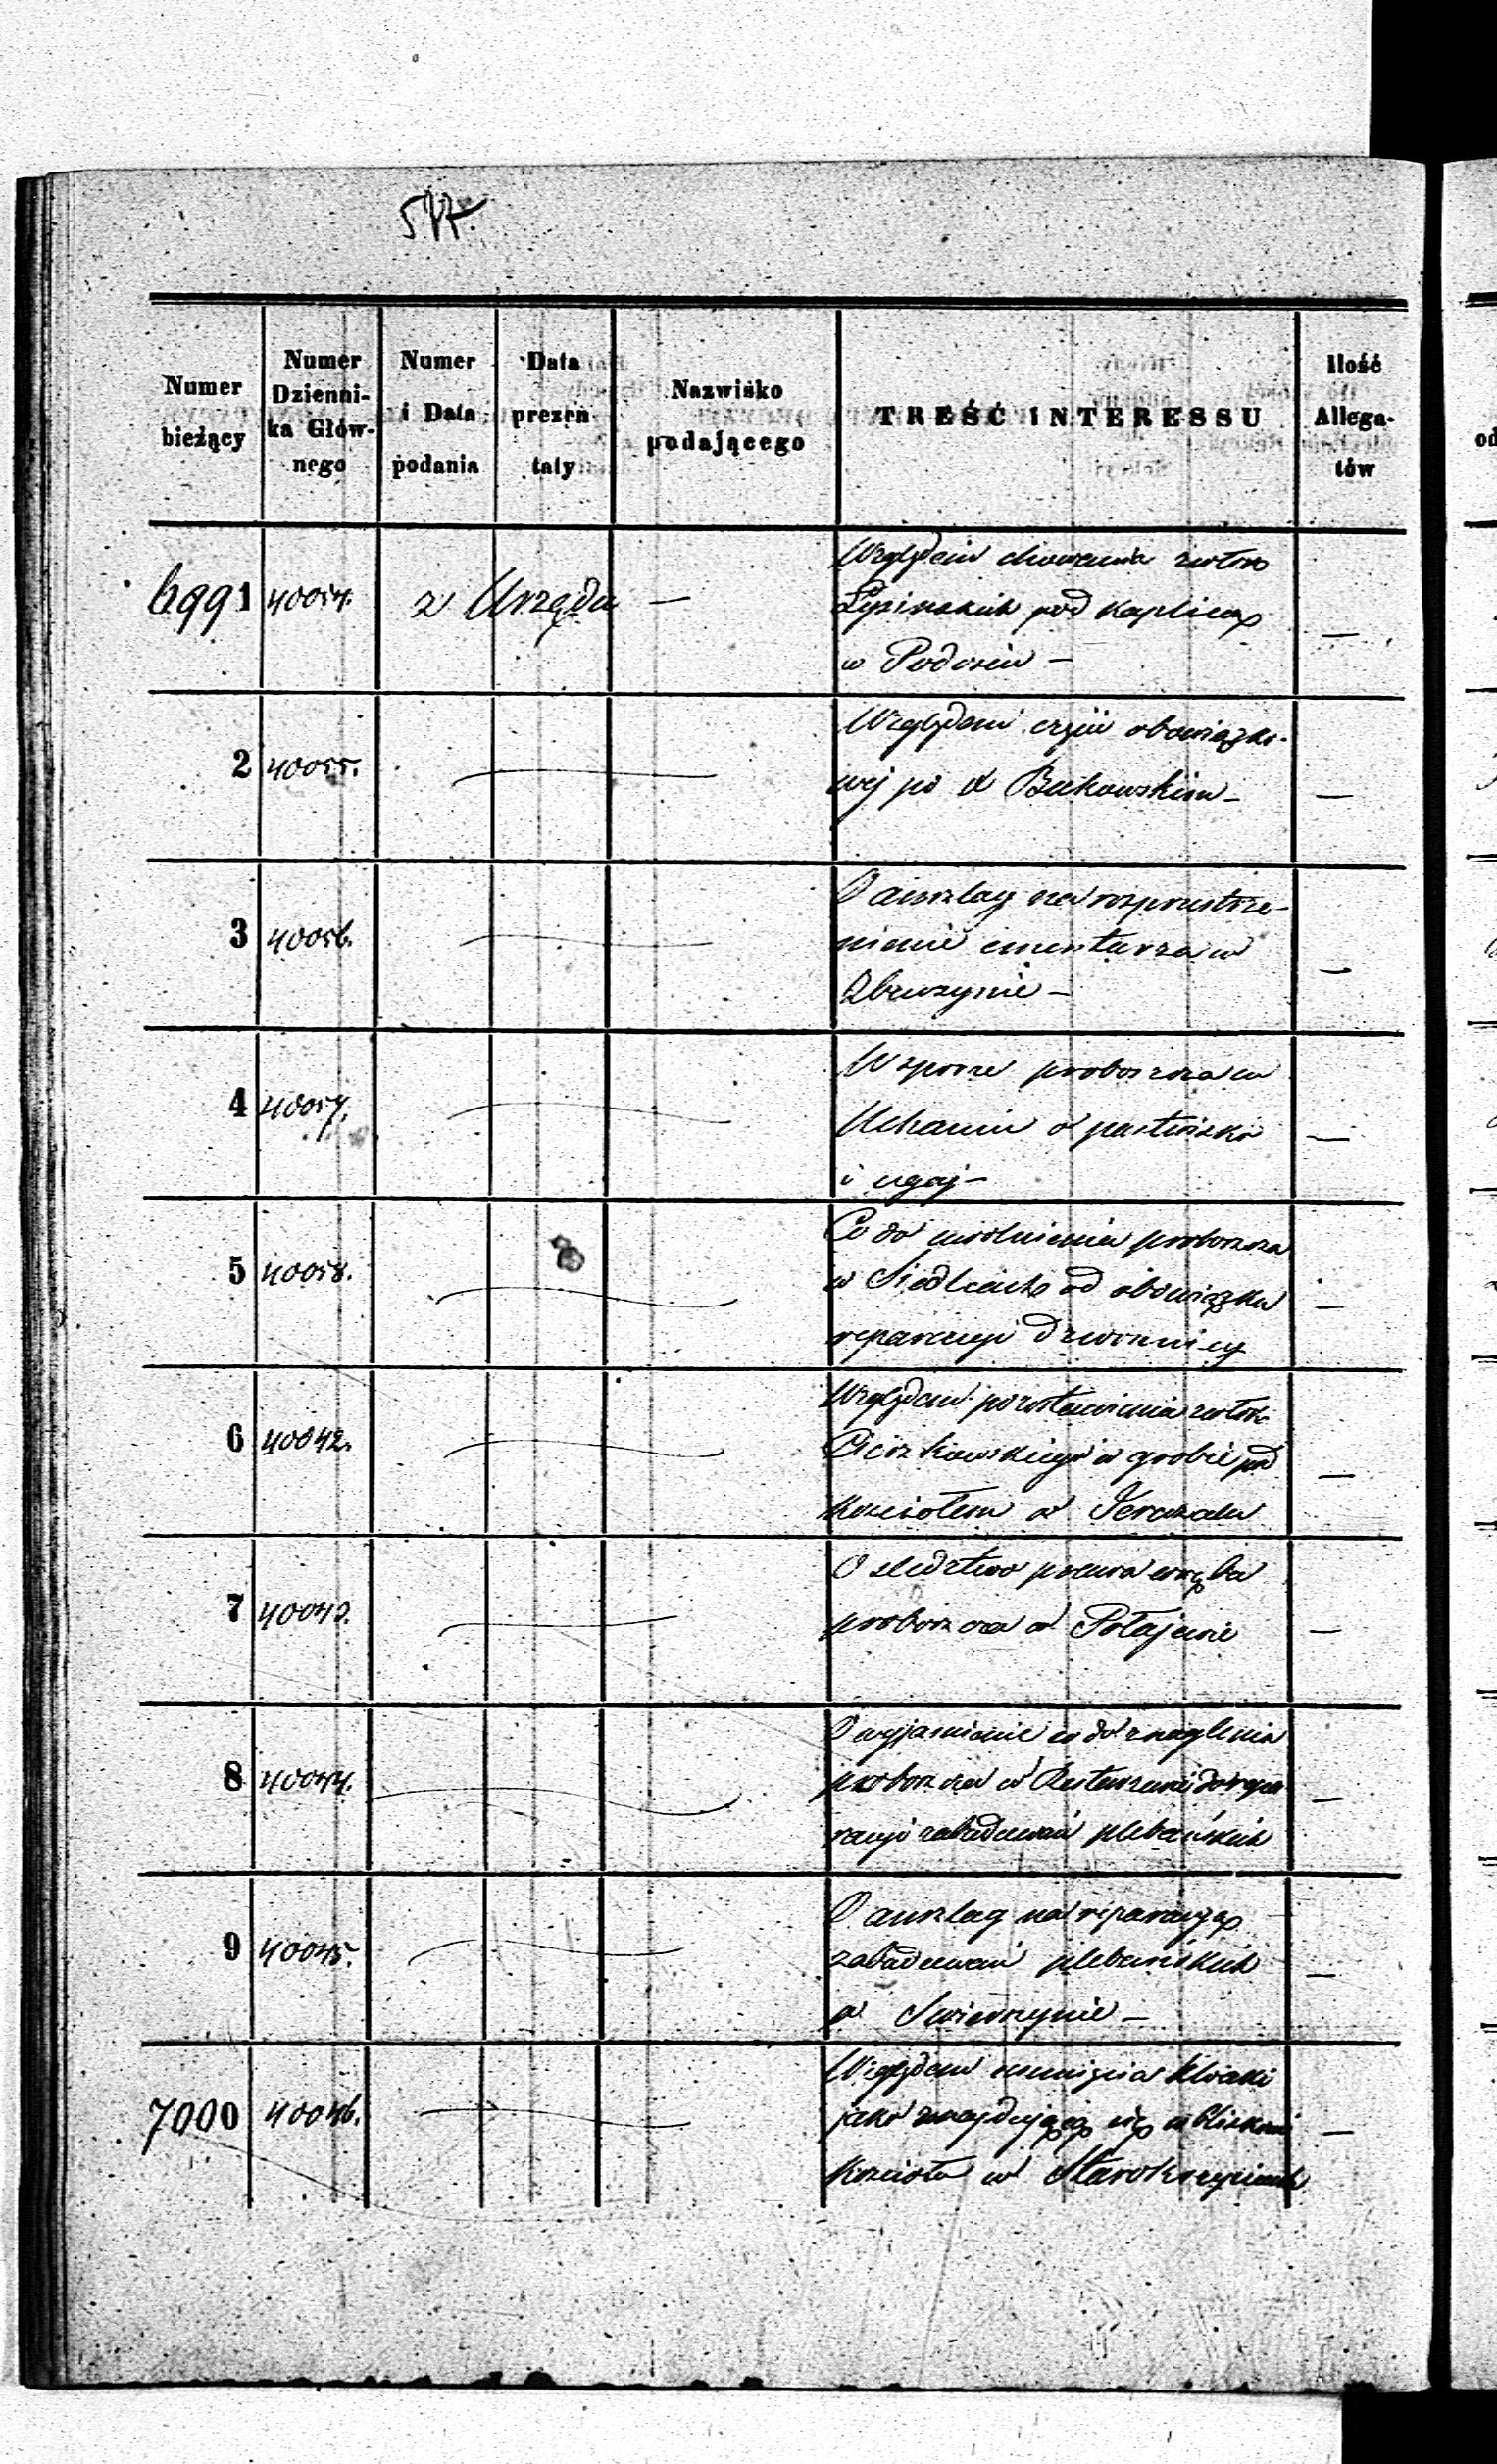 577.
Numer bieżący
Numer Dzienni-ka Głów-nego
Numer i Data podania
Data prezen taty
Nazwisko podającego
TREŚĆ INTERESSU
Ilość Allega-tów
6991 40054. z Urzędu — Względem chowania zwłok
Łypińskich pod kaplicą —
w Podosiu —
2 40055. Względem obowiązko-
wej po X Bukowskim —
3 40056. O anszlag na rozprostrze-
nienie cmentarza w
Zbuczynie —
4 40057. W sporze proboszcza w
Uchaniu o pastwisko
i ugaj —
5 40058. Co do uwolnienia proboszcza
w Siedlcach od obowiązku
reparacyi dzwonnicy
6 40042. Względem pozostawienia zwłok
w grobie pod
Kościołem w Jeruzalu
7 40043. O śledztwo
proboszcza w Potajewie
8 40044. O wyjaśnienie co do znaglenia
proboszcza w do repa
racyi zabudowań plebańskich
9 40045. O anszlag na reparacyą
zabudowań plebańskich
w Swierzynie —
7000 40046. Względem usunięcia kloaki
jako znajdującej się w bliskości
Kościoła w